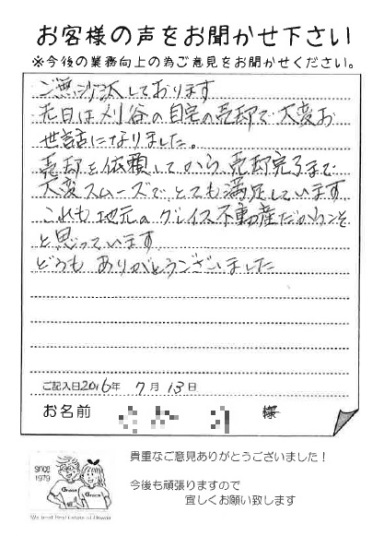 お客様の声をお聞かせ下さい
※今後の業務向上の為ご意見をお聞かせください。
ご無沙汰しております
先日は刈谷の自宅の売却で大変お
世話になりました。
売却を依頼してから売却完了まで
大変スムーズで、とても満足しています
これも地元のグレイス不動産だからこそ
と思っています
どうもありがとうございました
ご記入日2016年 7月 13日
お名前 様
since
1979
貴重なご意見ありがとうございました!
今後も頑張りますので
宜しくお願い致します